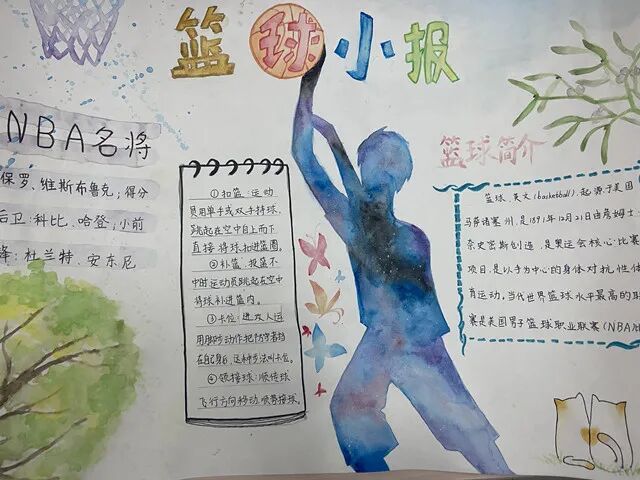 篮球小报
NBA名将
保罗、维斯布鲁克；得分
后卫：科比、哈登；小前
锋：杜兰特、安东尼
①扣篮：运动
员用单手或双手持球，
跳起在空中自上而下
直接将球扣进篮圈。
②补篮：投篮不
中时运动员跳起在空中
将球补进篮内。
③卡位：进攻人运
用脚步动作把防守者挡
在自己身后，这种步法叫卡位。
④领接球：顺传球
飞行方向移动，顺势接球。
篮球简介
篮球，英文(basketball)，起源于美国
马萨诸塞州，是1891年12月21日由詹姆士·
奈史密斯创造，是奥运会核心比赛
项目，是以手为中心的身体对抗性体
育运动。当代世界篮球水平最高的联
赛是美国男子篮球职业联赛(NBA)